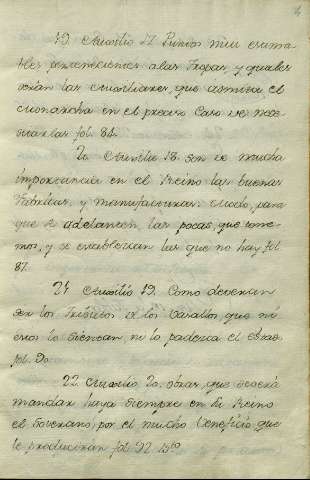 19 Auxilio 17 Puntos mui estima-
bles pertenecientes a las Tropas, y quales
seran las auxiliares, que admita el
Monarcha en el preciso caso de nece-
sitarlas fol. 84.
20 Auxilio 18. son de mucha
importancia en el Reino las buenas
Fabricas, y manufacturas: Modo, para
que se adelanten las pocas, que tene-
mos, y se establezcan las que no hay fol
87.
21 Auxilio 19. Como deveran
ser los Tributos de los Vasallos, que ni
estos lo sientan, ni lo padezca el Estado
fol. 90.
22 Auxilio 20. obras, que deverá
mandar haya siempre en su Reino
el Soverano, por el mucho beneficio que
le produciran fol. 92 bto